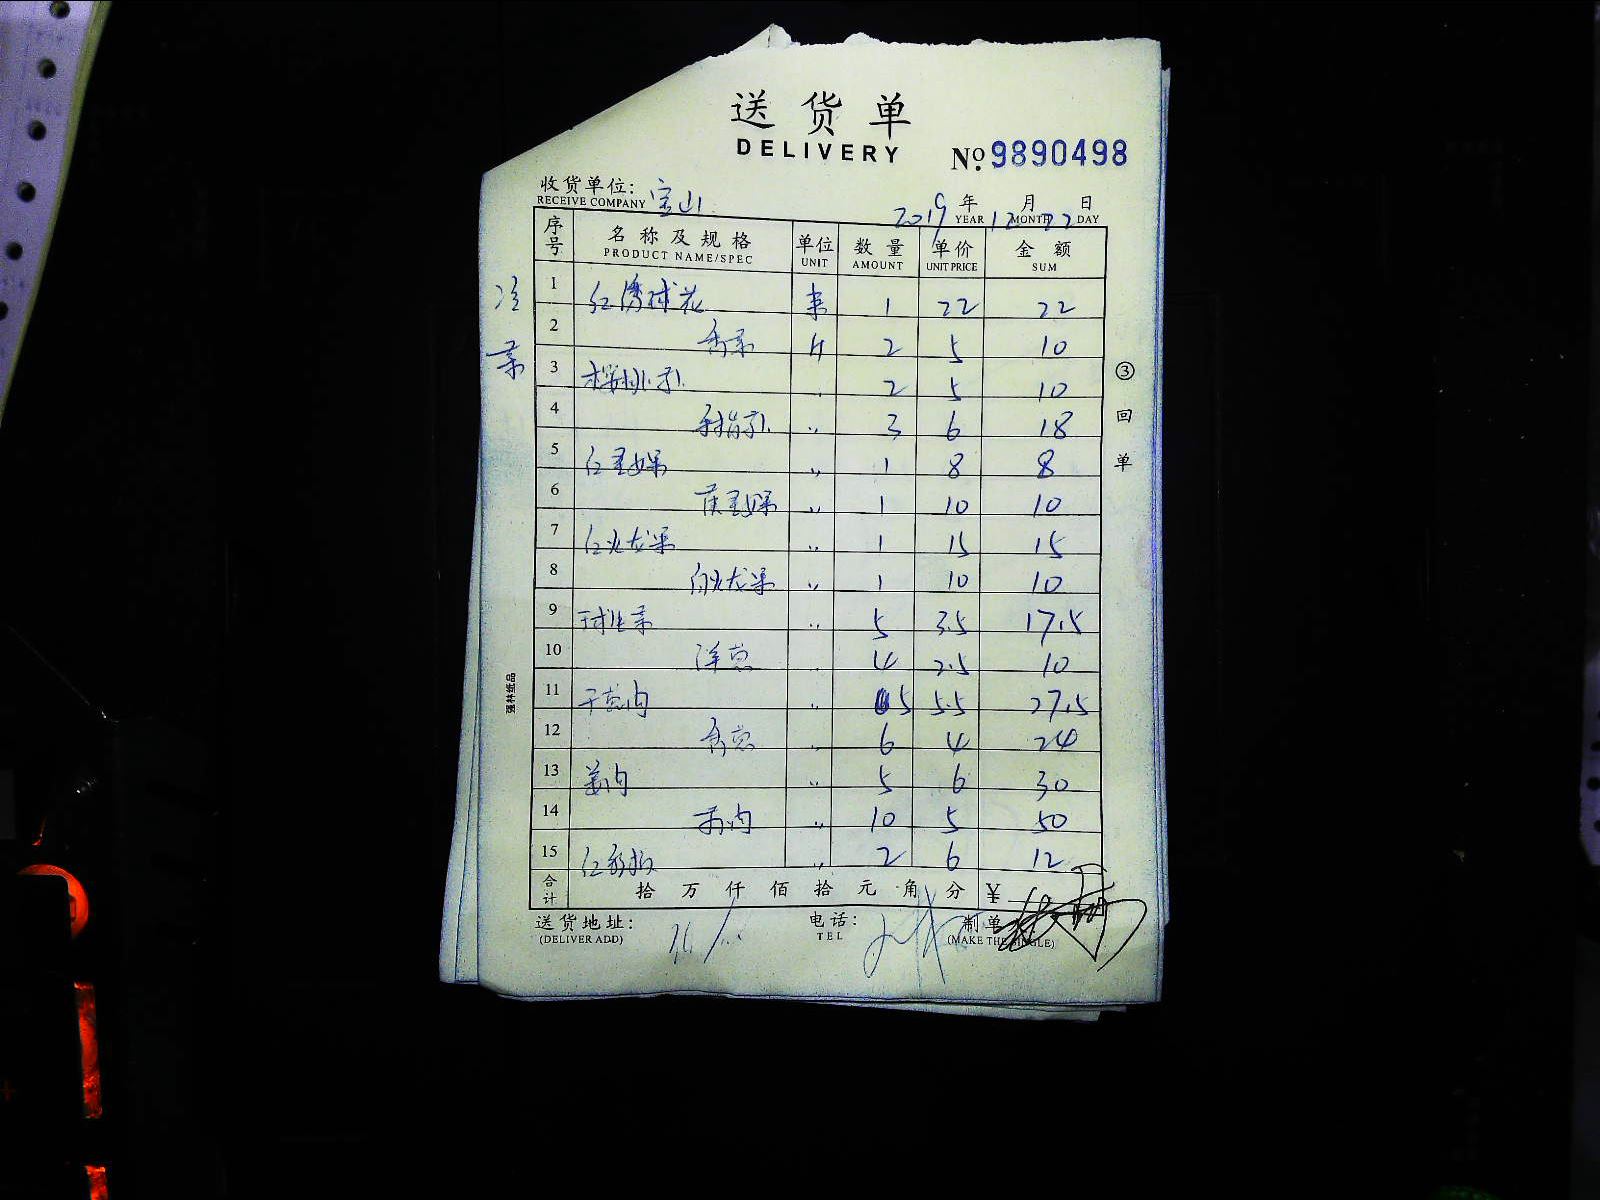 送货单
DELIVERY
№ 9890498
收货单位: 宝山
RECEIVE COMPANY
2019 年 12 月 22 日
YEAR MONTH DAY
序号 名称及规格 单位 数量 单价 金额
PRODUCT NAME/SPEC UNIT AMOUNT UNIT PRICE SUM
冷菜
1 红绣球花 束 1 22 22
2 香菜 斤 2 5 10
3 樱桃小引 2 5 10
4 " 3 6 18
5 红 " 1 8 8
6 " 1 10 10
7 红火龙果 " 1 15 15
8 白火龙果 " 1 10 10
9 球生菜 " 5 3.5 17.5
10 洋葱 " 4 2.5 10
11 干葱肉 " 5 5.5 27.5
12 香葱 " 6 4 24
13 姜肉 " 5 6 30
14 蒜肉 " 10 5 50
15 红 " 2 6 12
合计 拾 万 仟 佰 拾 元 角 分 ¥
送货地址: 电话: 制单
(DELIVER ADD) TEL (MAKE THE SINGLE)
③回单
强林纸品